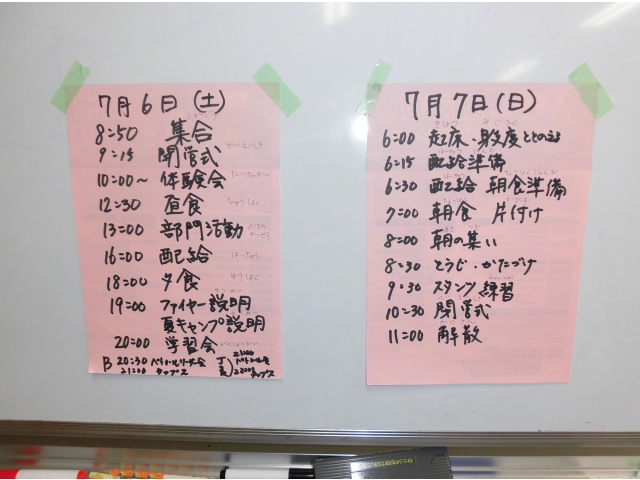 7月6日(土)
8:50 集合
9:15 開営式
10:00〜 体験会
12:30 昼食
13:00 部門活動
16:00 配給
18:00 夕食
19:00 ファイヤー説明
夏キャンプ説明
20:00 学習会
B 20:30
21:00 タップス
7月7日(日)
6:00 起床・身支度ととのえる
6:15 配給準備
6:30 配給 朝食準備
7:00 朝食 片付け
8:00 朝の集い
8:30 とうじ・かたづけ
9:30 スタンツ練習
10:30 閉営式
11:00 解散